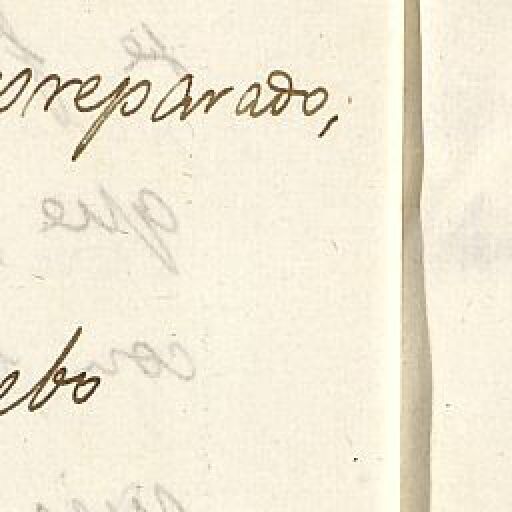 preparado,
ebo